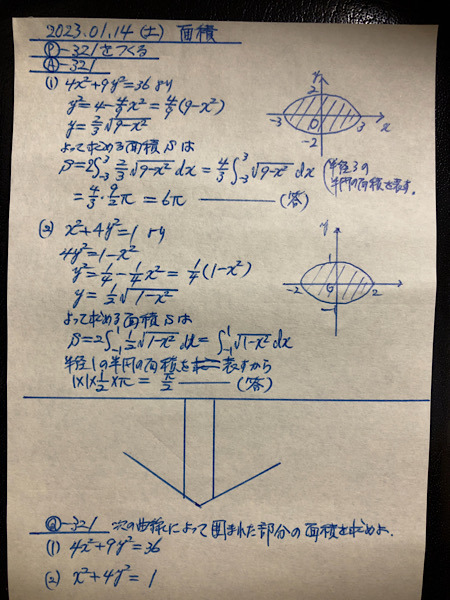 2023.01.14 (土) 面積
Ⓟ-321をつくる
Ⓐ-321
(1) 4x²+9y²=36 より
y²=4-4/9x²=4/9(9-x²)
y=2/3√9-x²
よって求める面積Sは
S=2∫₋₃³ 2/3√9-x² dx = 4/3∫₋₃³ √9-x² dx (半径3の
半円の面積を表す.
= 4/3・9/2π = 6π (答)
y
2
-3 O 3 x
-2
(2) x²+4y²=1 より
4y²=1-x²
y²=1/4-1/4x²=1/4(1-x²)
y=1/2√1-x²
よって求める面積Sは
S=2∫₋₁¹ 1/2√1-x² dx=∫₋₁¹√1-x² dx
半径1の半円の面積を表すから
1×1×1/2×π = π/2 (答)
y
1
-2 2
-1
Ⓠ-321 次の曲線によって囲まれた部分の面積を求めよ.
(1) 4x²+9y²=36
(2) x²+4y²=1